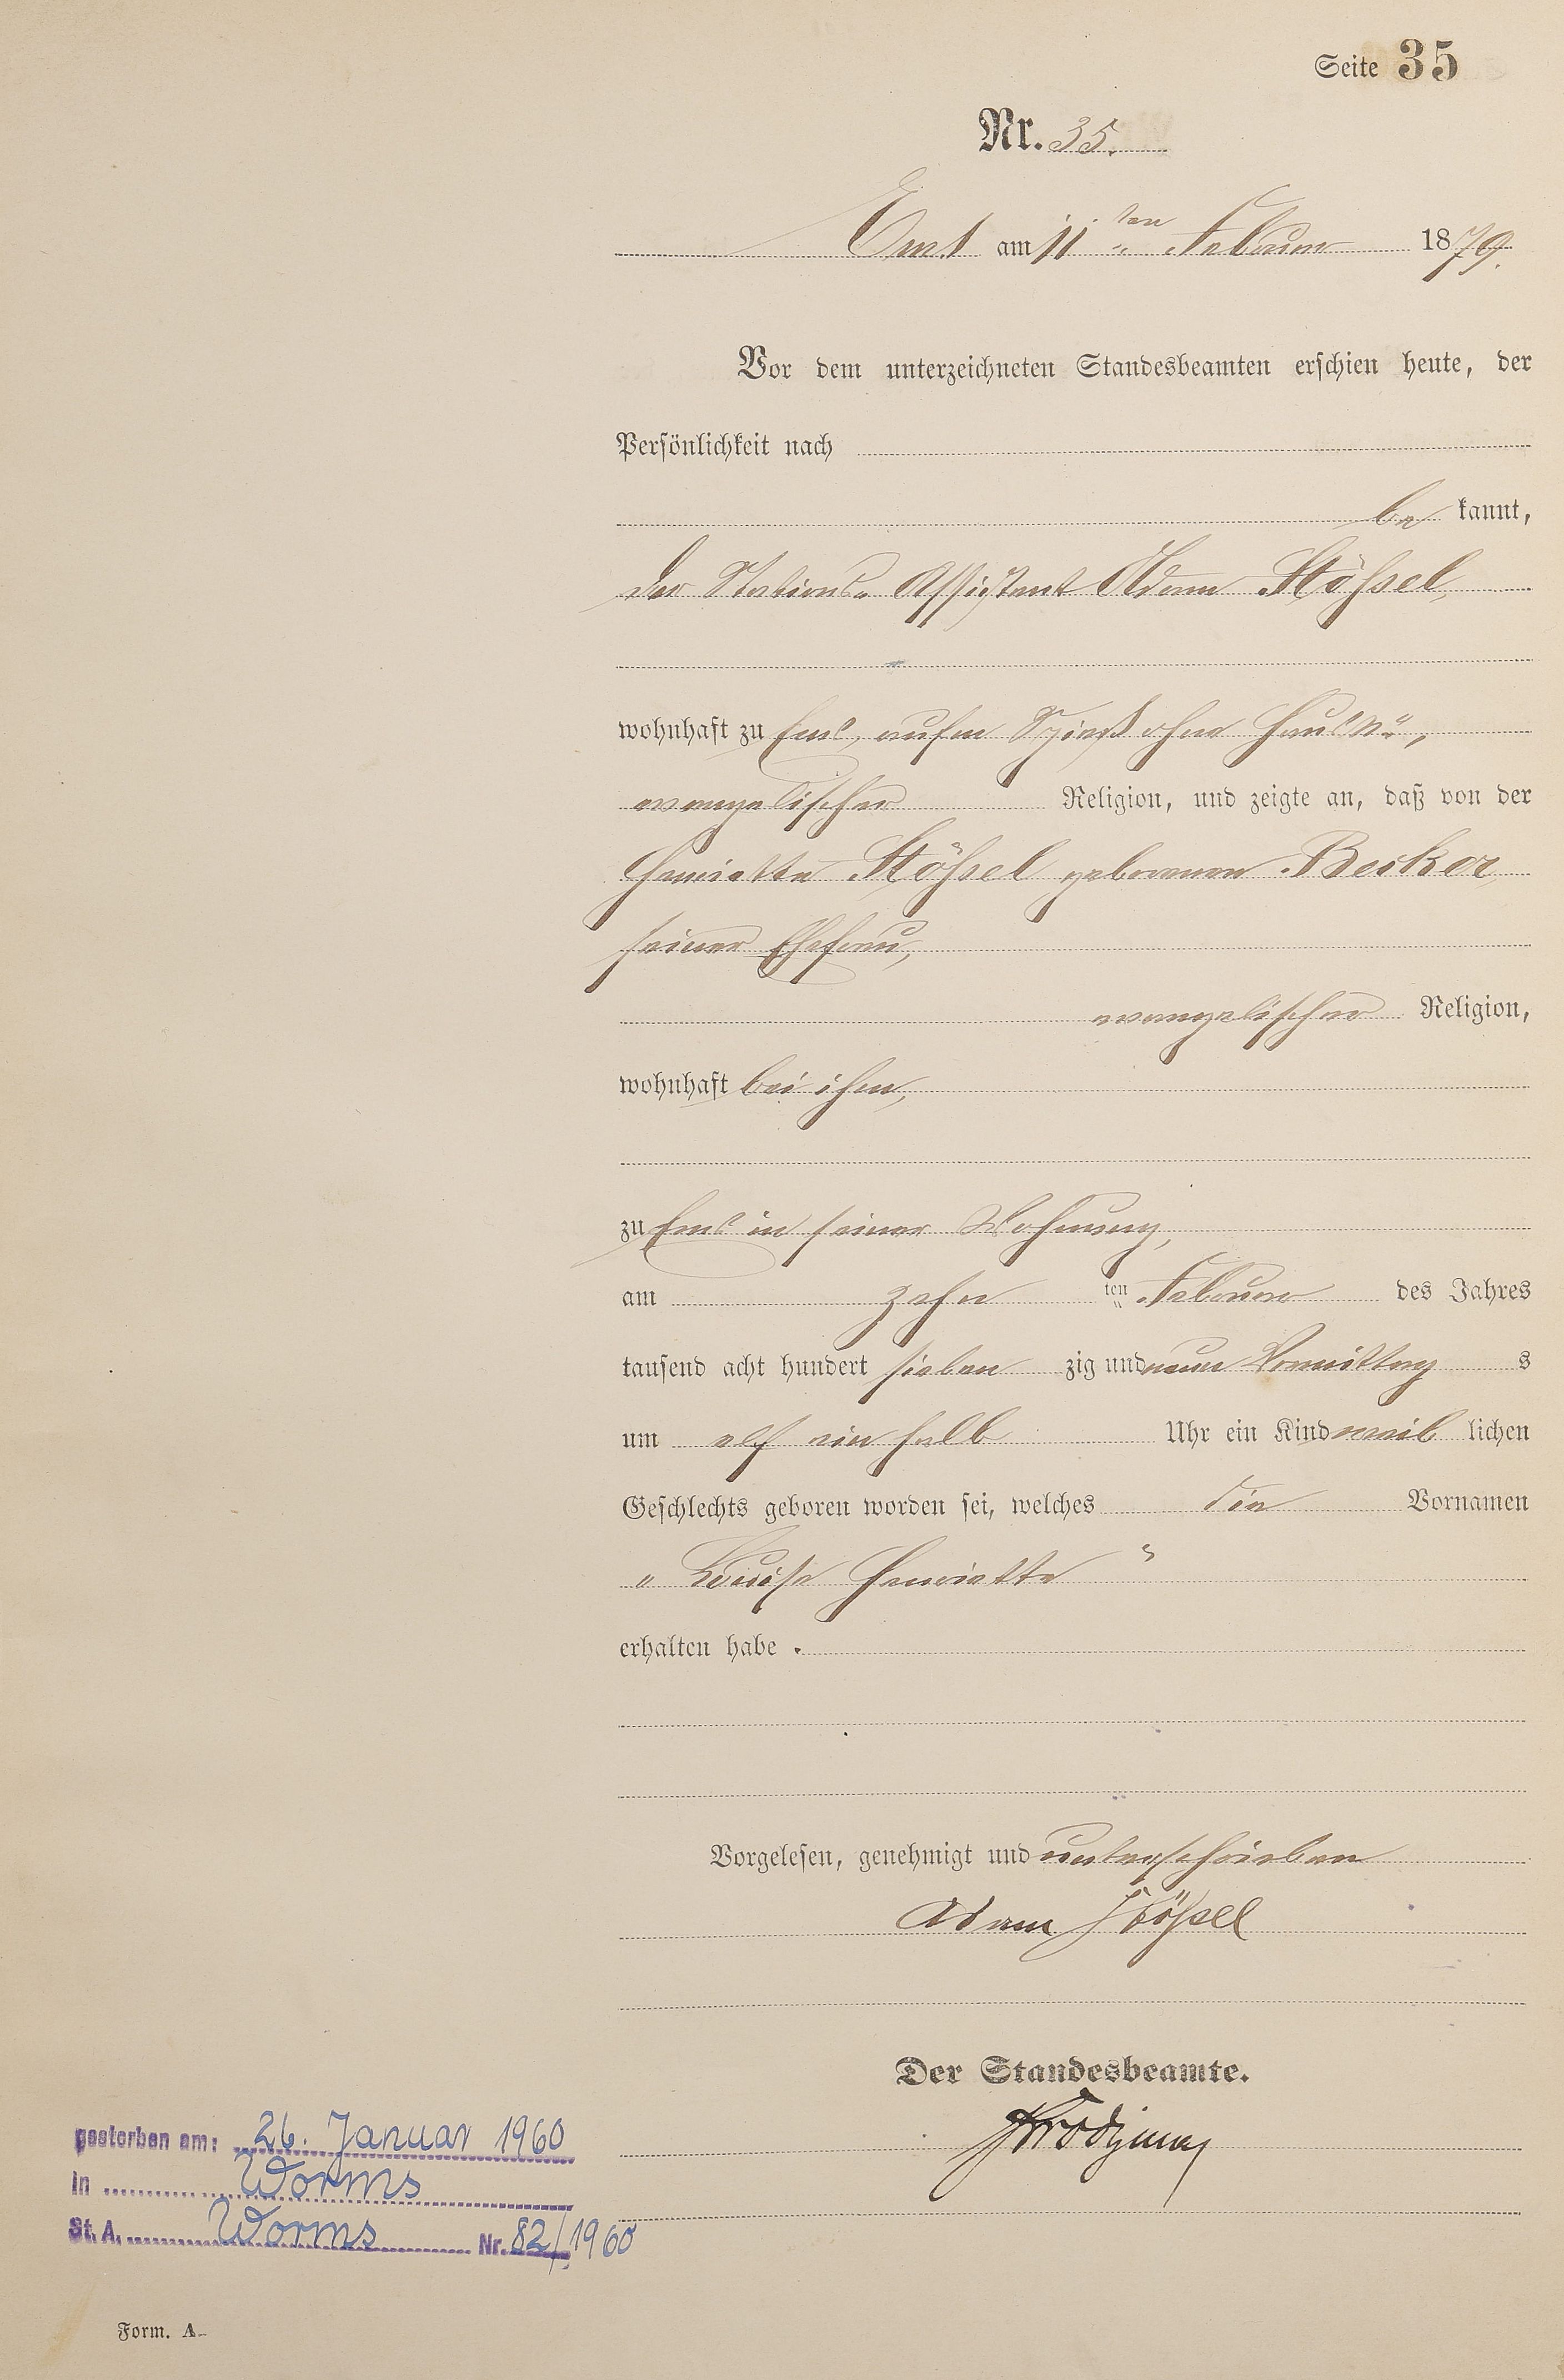 Seite 35
Nr. 35.
Ems am 11ten Februar 1879.
Vor dem unterzeichneten Standesbeamten erschien heute, der
Persönlichkeit nach
be kannt,
der Stations-Assistent Adam Stößel,
wohnhaft zu Ems, aufm Spieß ohne Haus No,
evangelischer Religion, und zeigte an, daß von der
Henriette Stößel geborenen Becker
seiner Ehefrau,
evangelischer Religion,
wohnhaft bei ihm,
zu Ems in seiner Wohnung,
am zehn ten Februar des Jahres
tausend acht hundert sieben zig und neun Vormittag s
um elf ein halb Uhr ein Kind weib lichen
Geschlechts geboren worden sei, welches die Vornamen
„ Louise Henriette "
erhalten habe.
Vorgelesen, genehmigt und unterschrieben
Adam Stößel
Der Standesbeamte.
gestorben am: 26. Januar 1960
in Worms
St. A. Worms Nr. 82/1960
Form. A.